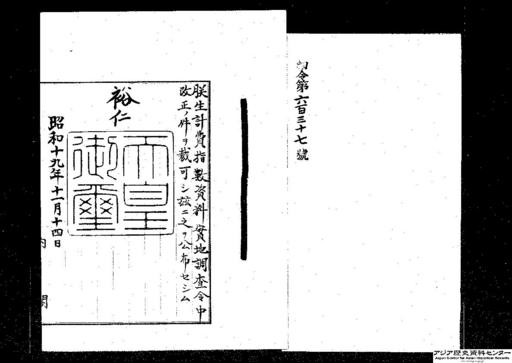 勅令第六百三十七號
朕生計費指數資料實地調査令中
改正ノ件ヲ裁可シ玆ニ之ヲ公布セシム
裕仁
天皇
御璽
昭和十九年十一月十四日
内
閣
アジア歴史資料センター
Japan Center for Asian Historical Records